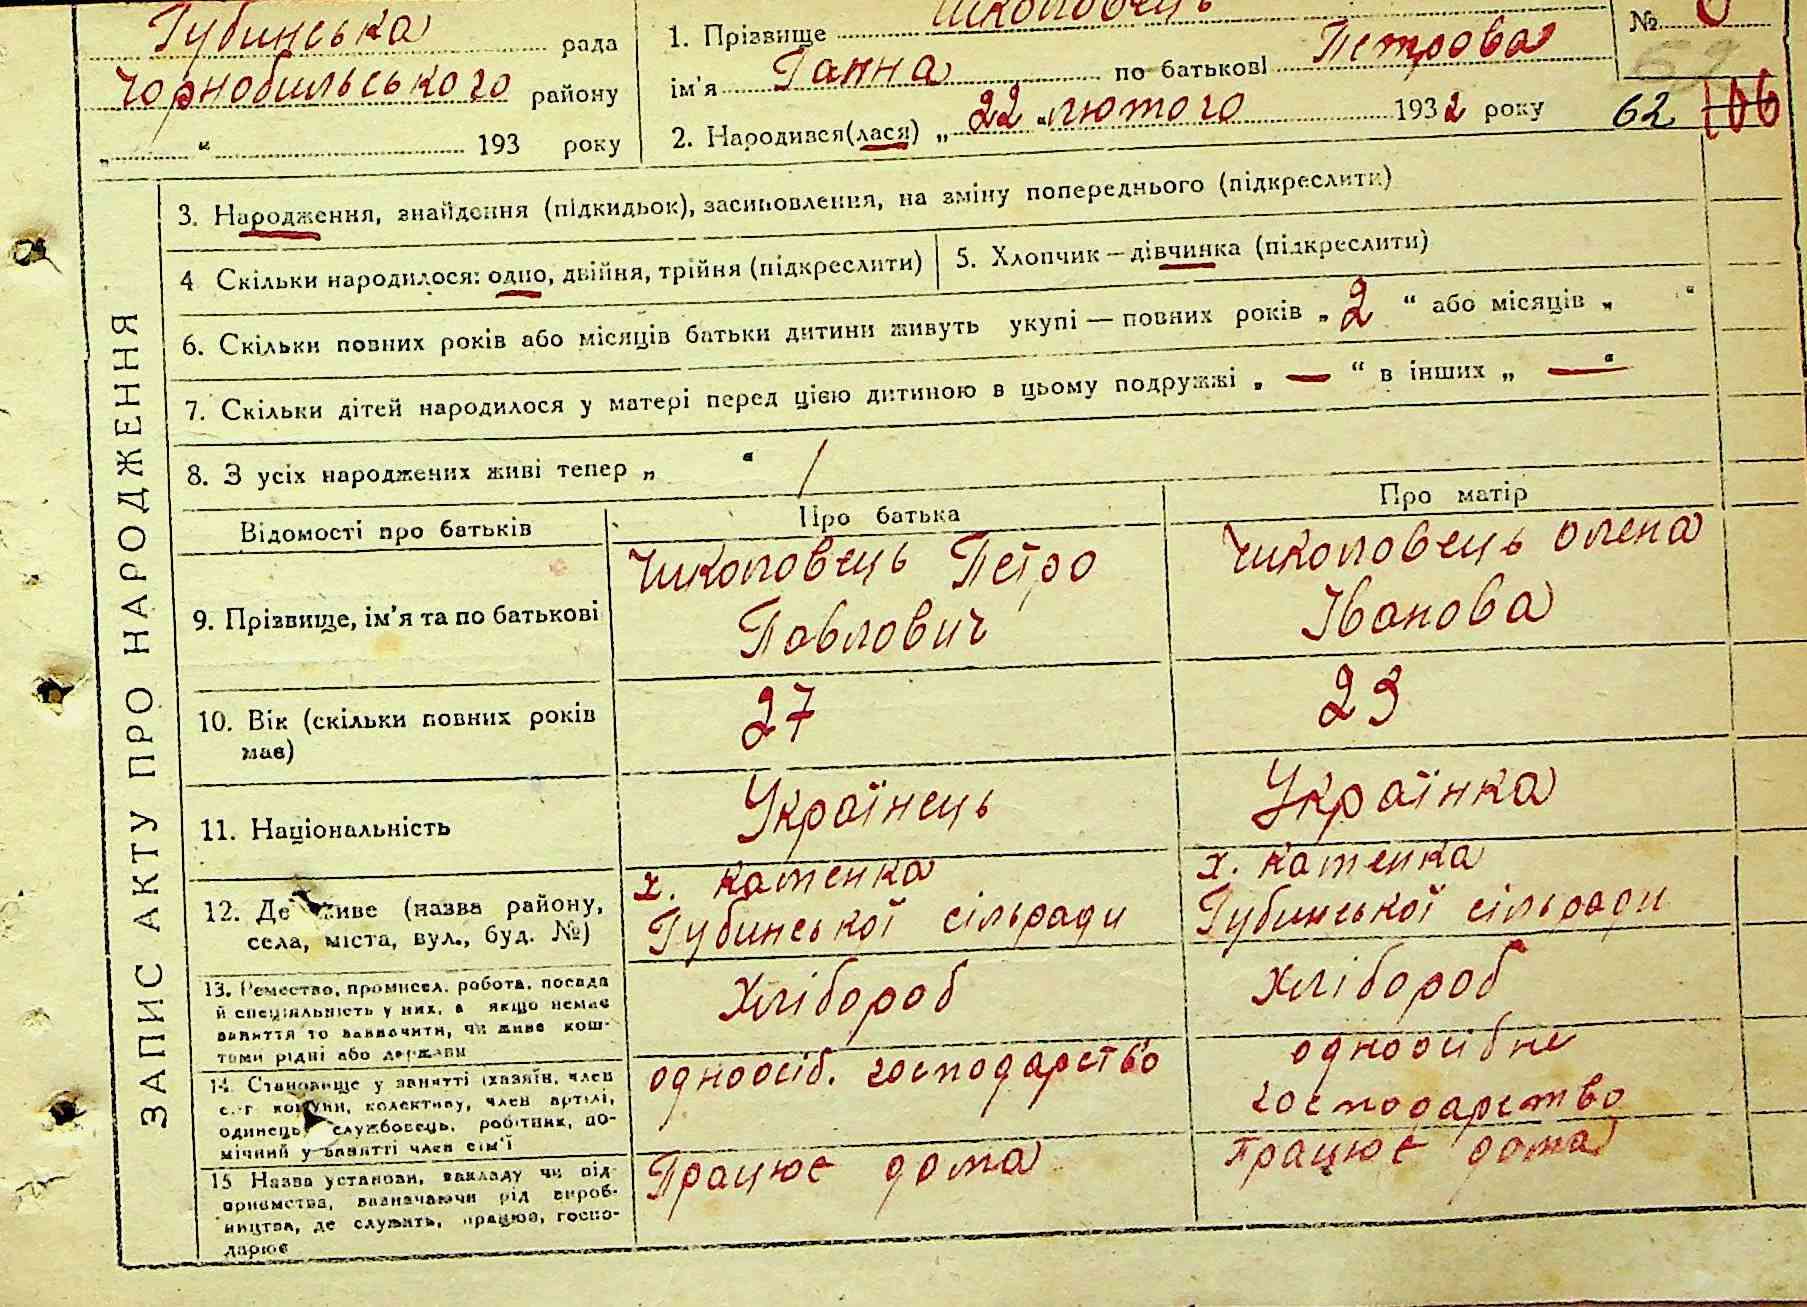 Губинська рада
Чорнобильського району
„ “ 193 року
1. Прізвище Чикоповець
ім'я Ганна по батькові Петрова
2. Народився(лася) „ 22 “ лютого 1932 року
№
62 106
ЗАПИС АКТУ ПРО НАРОДЖЕННЯ
3. Народження, знайдення (підкидьок), засиновлення, на зміну попереднього (підкреслити)
4 Скільки народилося: одно, двійня, трійня (підкреслити)
5. Хлопчик — дівчинка (підкреслити)
6. Скільки повних років або місяців батьки дитини живуть укупі — повних років „ 2 “ або місяців „ “
7. Скільки дітей народилося у матері перед цією дитиною в цьому подружжі „ — “ в інших „ — “
8. З усіх народжених живі тепер „ “ /
Відомості про батьків
Про батька
Про матір
9. Прізвище, ім'я та по батькові
Чикоповець Петро
Павлович
Чикоповець Олена
Іванова
10. Вік (скільки повних років
має)
27
23
11. Національність
Українець
Українка
12. Де живе (назва району,
села, міста, вул., буд. №)
х. Каменка
Губинської сільради
х. Каменка
Губинської сільради
13. Ремество, промисел, робота, посада
й спеціяльність у них, а якщо немає
заняття то зазначити, чи живе кош-
тами рідні або держави
Хлібороб
Хлібороб
14. Становище у занятті (хазяїн, член
с.-г комуни, колективу, член артілі,
одинець, службовець, робітник, по-
мічний у занятті член сім'ї
одноосіб. господарство
одноосібне
господарство
15 Назва установи, закладу чи під-
приємства, зазначаючи рід вироб-
ництва, де служить, працює, госпо-
дарює
Працює дома
Працює дома